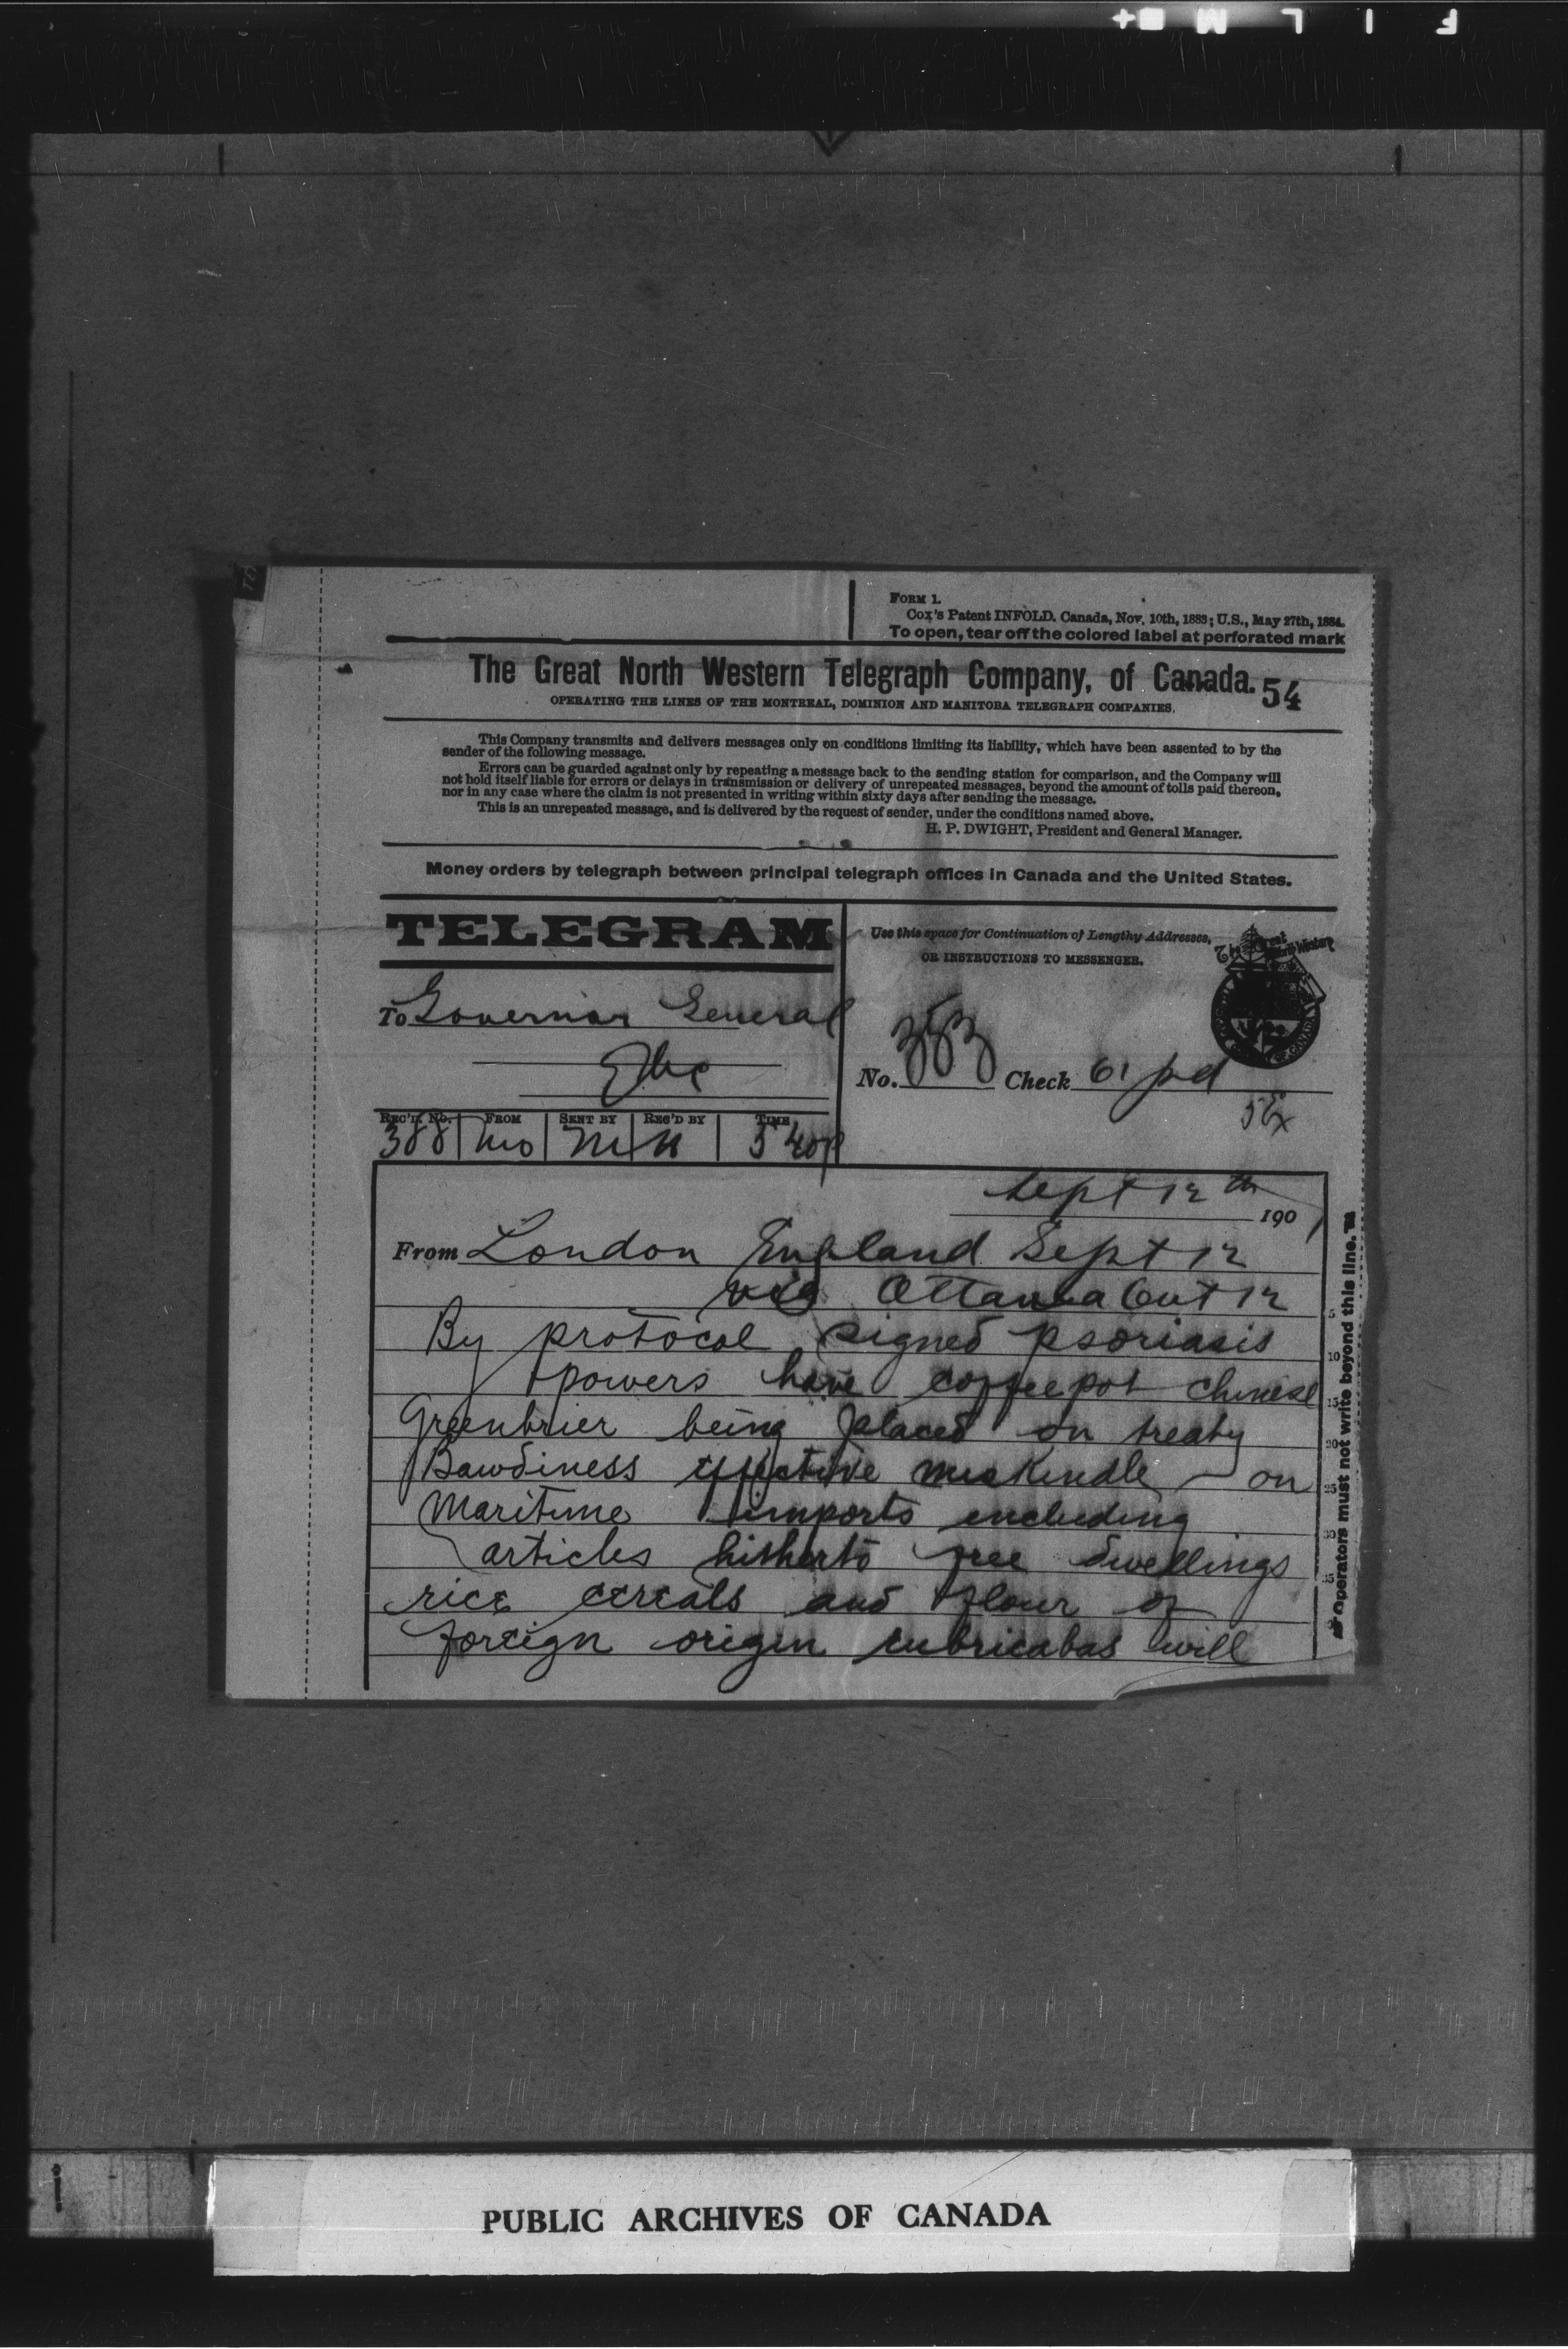 FORM 1.
Cox's Patent INFOLD. Canada, Nov. 10th, 1883; U.S., May 27th, 1884.
To open, tear off the colored label at perforated mark
The Great North Western Telegraph Company, of Canada. 54
OPERATING THE LINES OF THE MONTREAL, DOMINION AND MANITOBA TELEGRAPH COMPANIES.
This Company transmits and delivers messages only on conditions limiting its liability, which have been assented to by the
sender of the following message.
Errors can be guarded against only by repeating a message back to the sending station for comparison, and the Company will
not hold itself liable for errors or delays in transmission or delivery of unrepeated messages, beyond the amount of tolls paid thereon,
nor in any case where the claim is not presented in writing within sixty days after sending the message.
This is an unrepeated message, and is delivered by the request of sender, under the conditions named above.
H. P. DWIGHT, President and General Manager.
Money orders by telegraph between principal telegraph offices in Canada and the United States.
TELEGRAM
Use this space for Continuation of Lengthy Addresses,
OR INSTRUCTIONS TO MESSENGER.
The Great North Western
To Governor General
Qbc
No. 353 Check 61 pd
5Ex
REC'D. No. FROM SENT BY REC'D BY TIME
388 Mo M H 5 40p
Sept 12th 1901
From London England Sept 12
via Ottawa Ont 12
By protocol signed psoriasis
powers have coffeepot chinese
Greenbrier being placed on treaty
Bawdiness effective miskindle on
maritime imports including
articles hitherto free dwellings
rice cereals and flour of
foreign origin lubricabas will
Operators must not write beyond this line.
5
10
15
20
25
30
35
PUBLIC ARCHIVES OF CANADA
F I L M